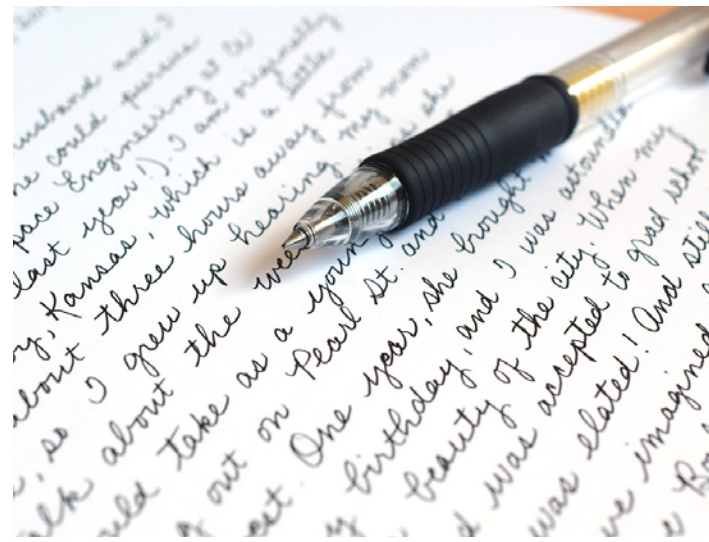 husband and I
he could pursue
space Engineering at Co
last year!). I am originally
y, Kansas, which is a little
about three hours away from
, so I grew up hearing my mom
alk about the wee she
ould take as a young
g out on Pearl St. and
st. One year, she brought
y birthday, and I was astounde
beauty of the city. When my
d was accepted to grad school
was elated! And still
ve imagined
e Bo